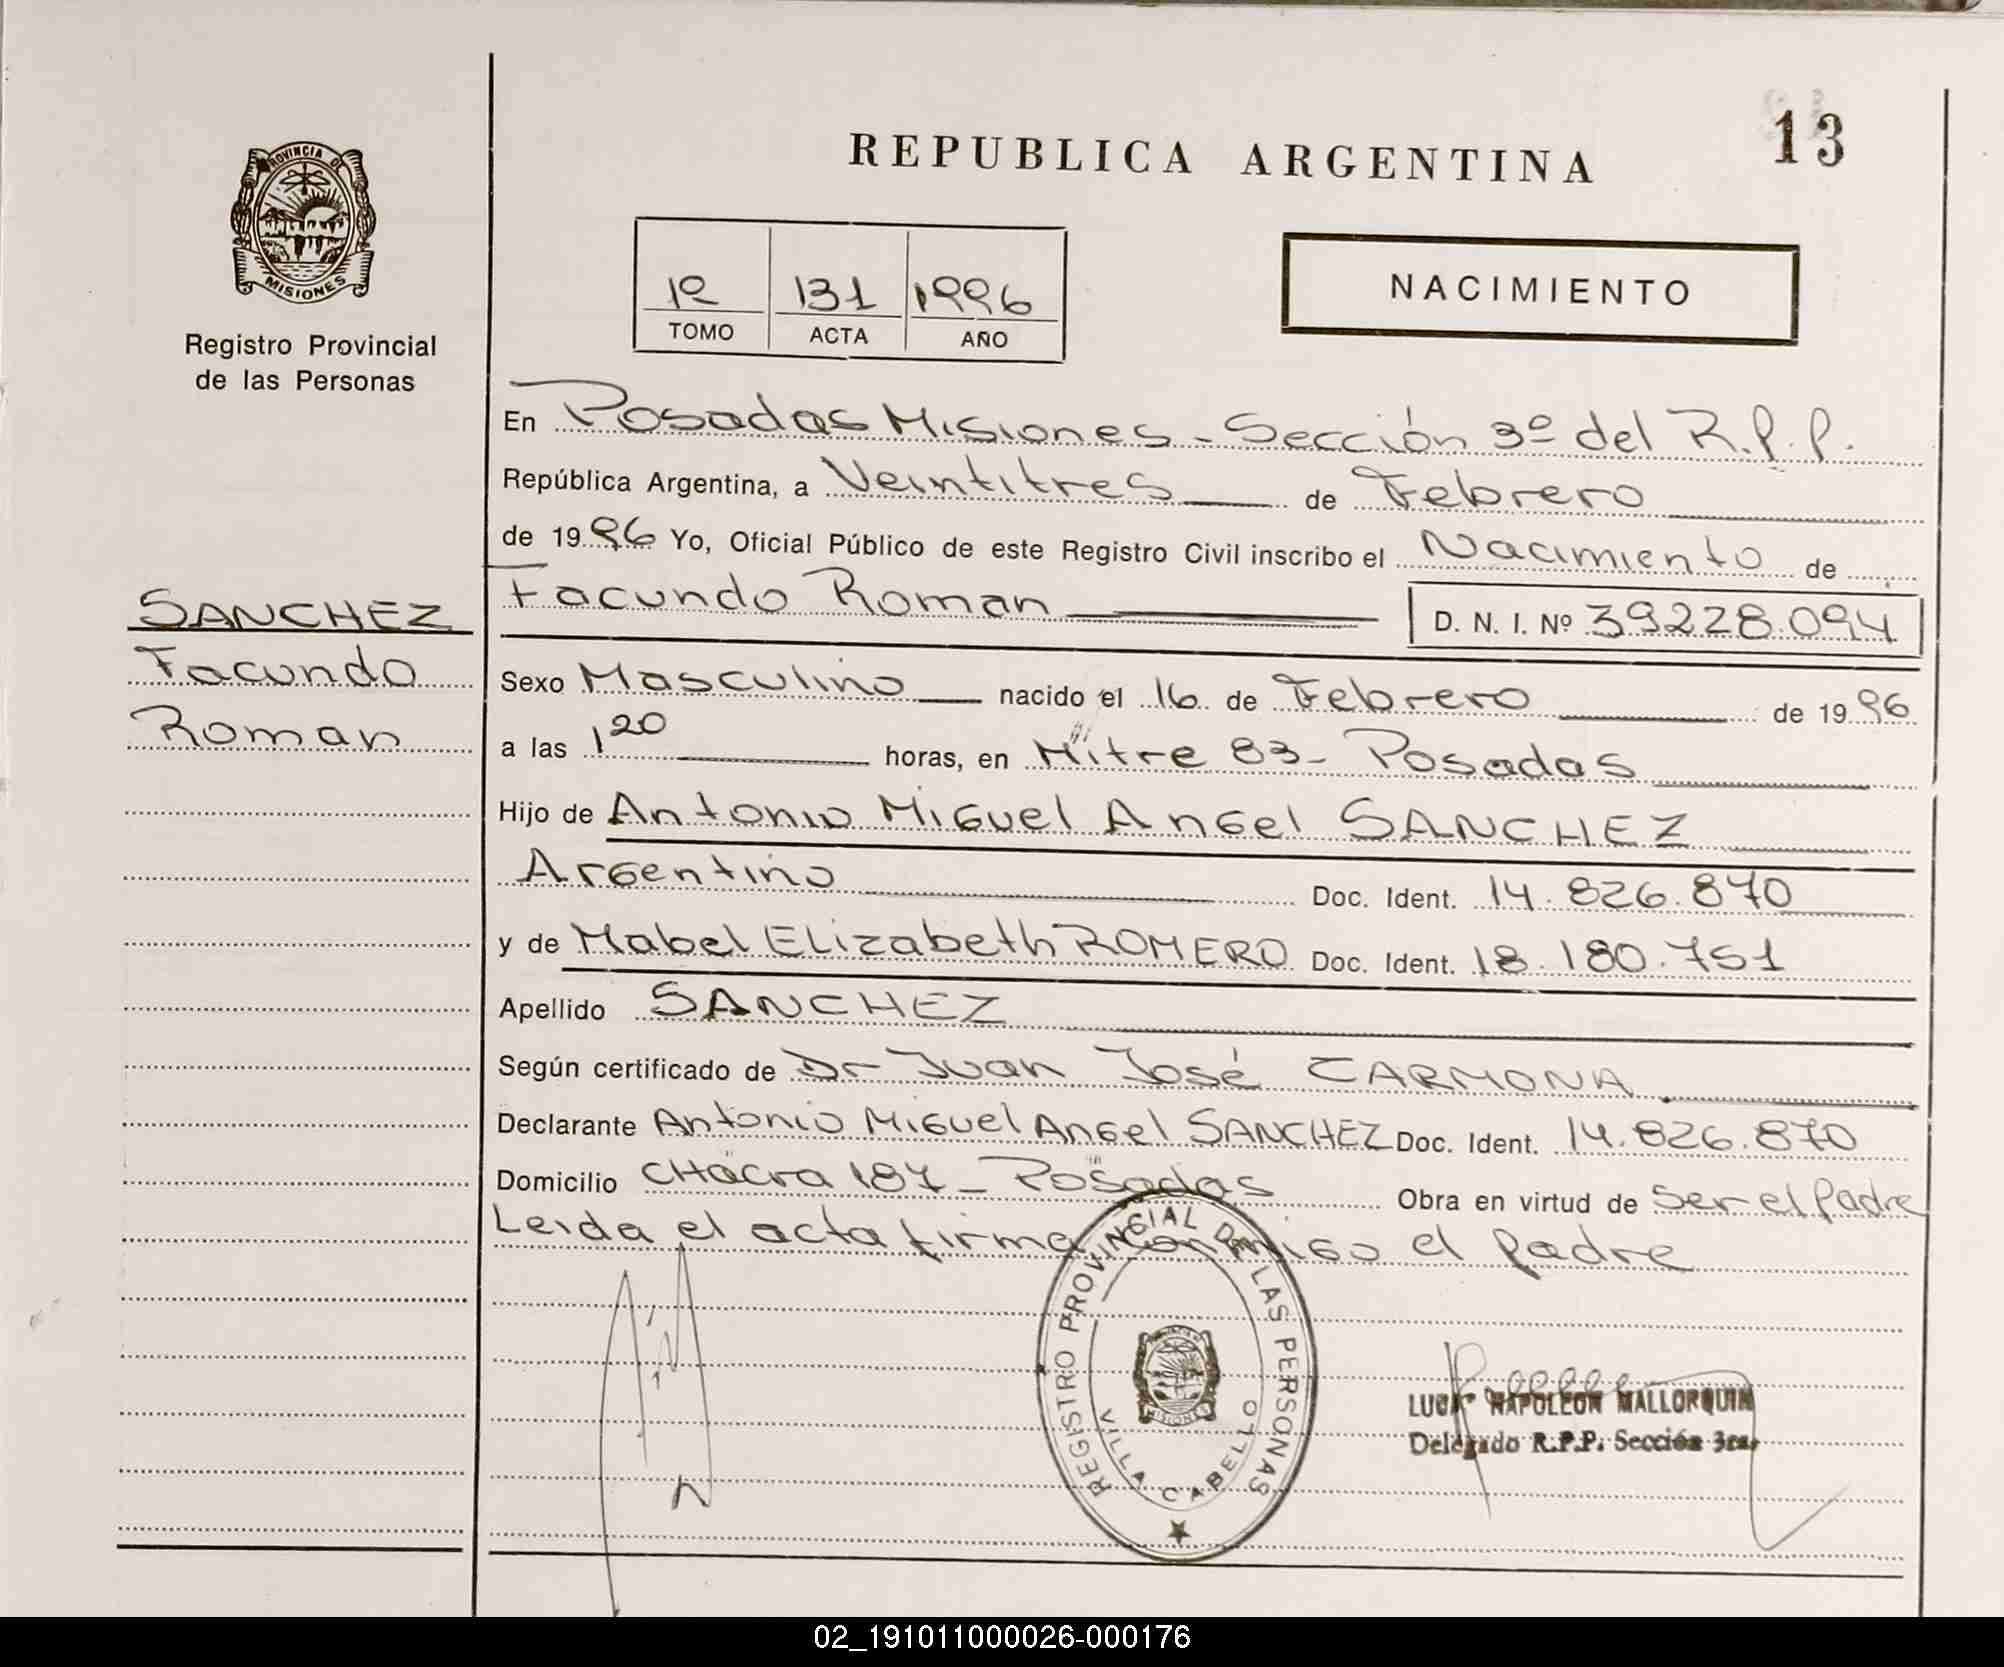 REPUBLICA ARGENTINA
13
PROVINCIA DE
MISIONES
Registro Provincial
de las Personas
1º 131 1996
TOMO ACTA AÑO
NACIMIENTO
En Posadas Misiones - Sección 3º del R.P.P.
República Argentina, a Veintitres de Febrero
de 1996 Yo, Oficial Público de este Registro Civil inscribo el Nacimiento de
Facundo Roman D. N. I. Nº 39228.094
SANCHEZ
Facundo
Roman
Sexo Masculino nacido el 16 de Febrero de 1996
a las 1 20 horas, en Mitre 83 - Posadas
Hijo de Antonio Miguel Angel SANCHEZ
Argentino Doc. Ident. 14.826.870
y de Mabel Elizabeth ROMERO Doc. Ident. 18.180.751
Apellido SANCHEZ
Según certificado de Dr Juan José CARMONA
Declarante Antonio Miguel Angel SANCHEZ Doc. Ident. 14.826.870
Domicilio CHacra 187 - Posadas Obra en virtud de ser el Padre
Leida el acta firma conmigo el padre
REGISTRO PROVINCIAL DE LAS PERSONAS
VILLA CABELLO
NAPOLEON MALLORQUIN
Delegado R.P.P. Sección 3ra.
02_191011000026-000176